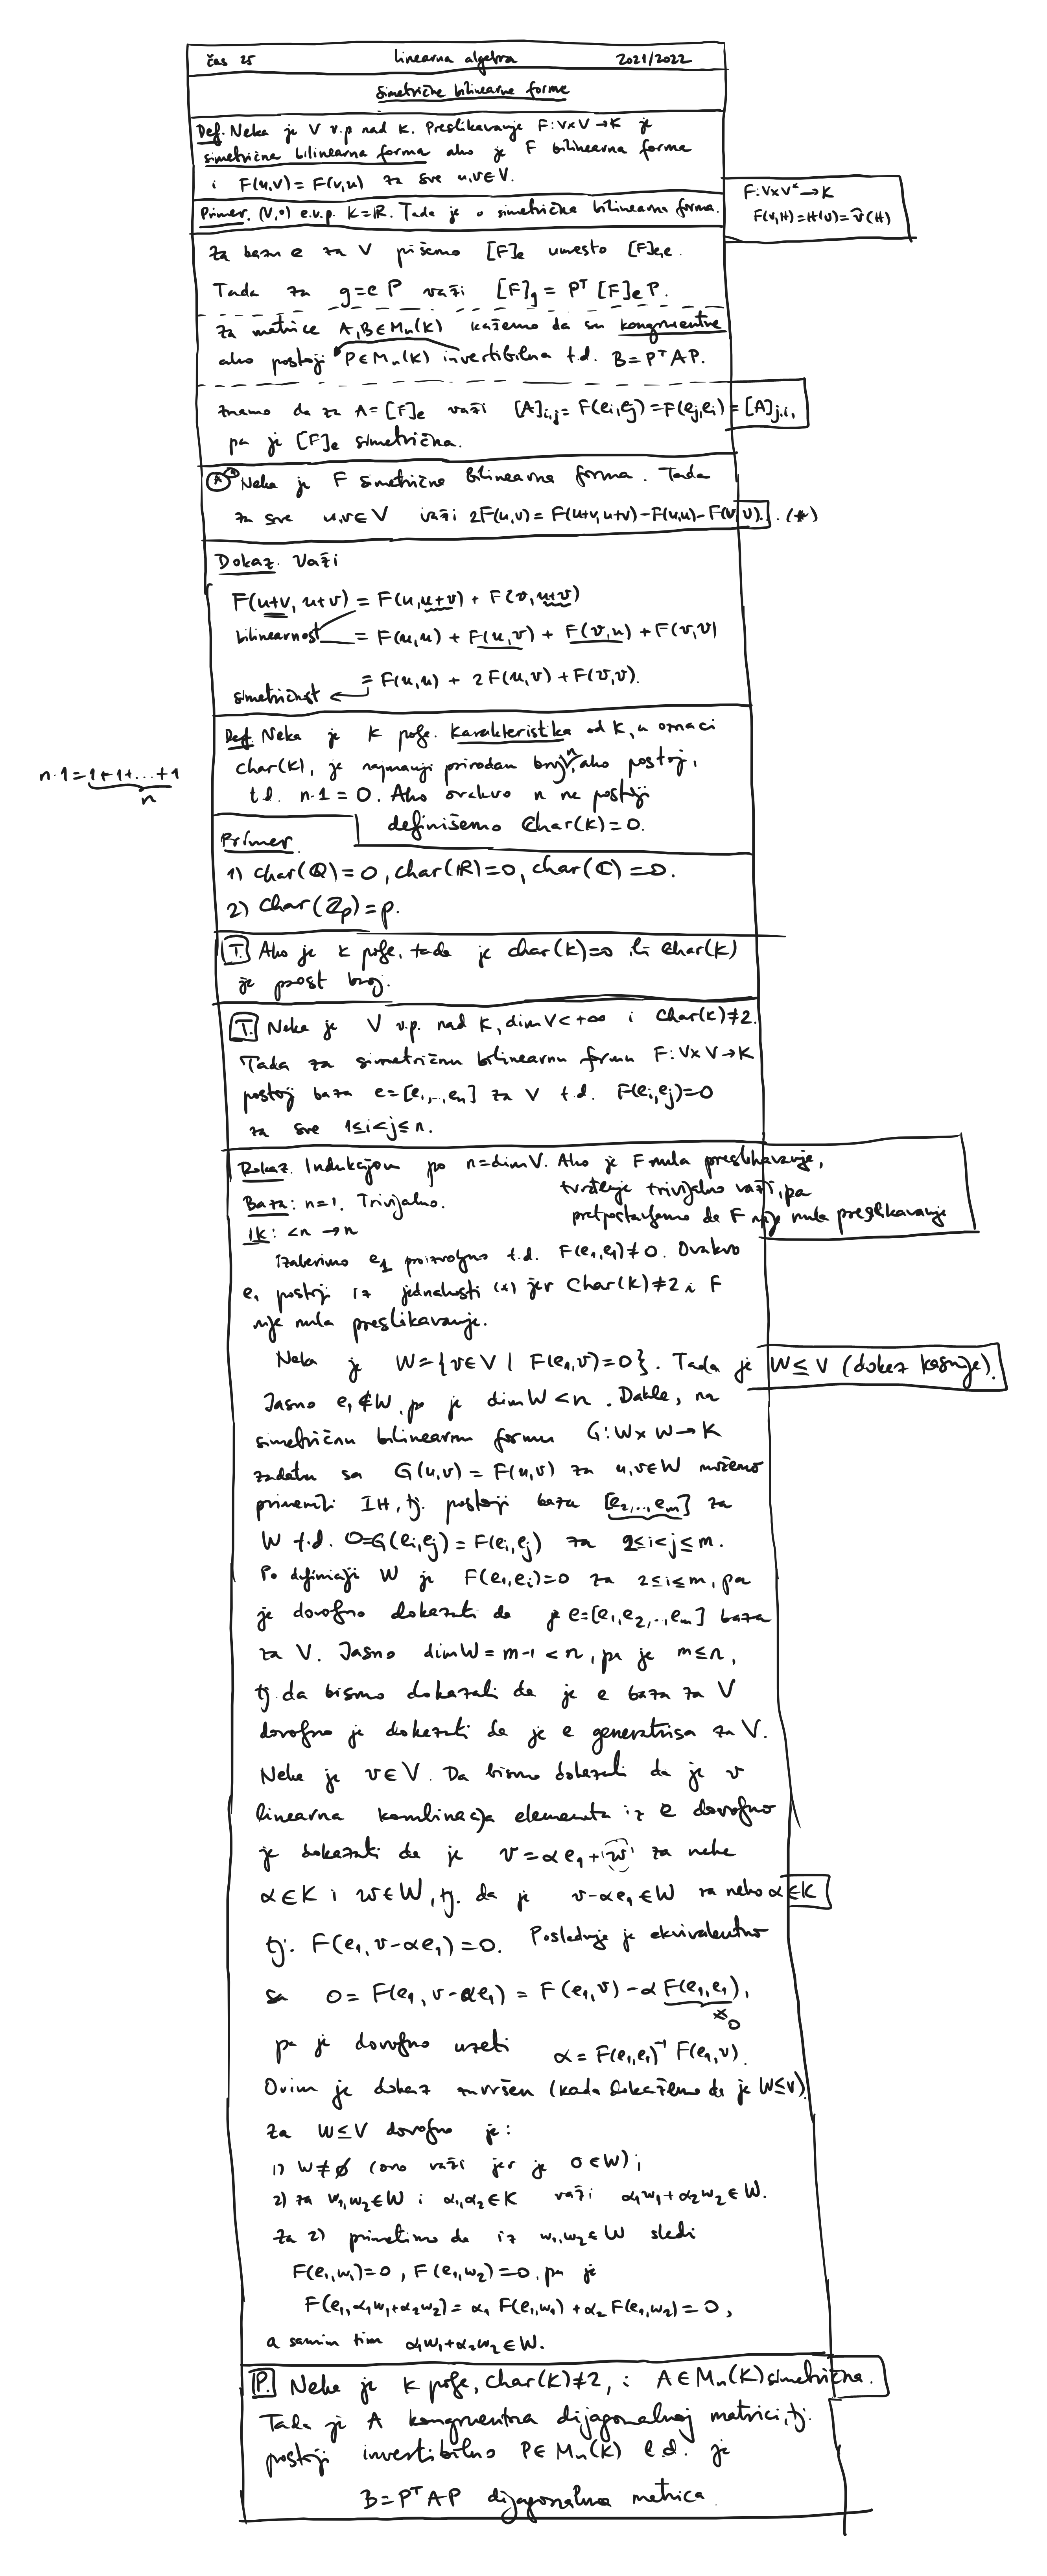 čas 25 linearna algebra 2021/2022
Simetrične bilinearne forme
Def. Neka je V v.p nad K. Preslikavanje F: V×V→K je
simetrična bilinearna forma ako je F bilinearna forma
i F(u,v) = F(v,u) za sve u,v∈V.
Primer. (V,∘) e.v.p. K=ℝ. Tada je ∘ simetrična bilinearna forma.
F: V×V*→K
F(v,H)=H(v)=ṽ(H)
Za bazu e za V pišemo [F]e umesto [F]e,e.
Tada za g=eP važi [F]g = Pᵀ [F]e P.
Za matrice A,B∈Mn(K) kažemo da su kongruentne
ako postoji P∈Mn(K) invertibilna t.d. B=PᵀAP.
Znamo da za A=[F]e važi [A]i,j = F(ei,ej) = F(ej,ei) = [A]j,i,
pa je [F]e simetrična.
Neka je F simetrična bilinearna forma. Tada
za sve u,v∈V važi 2F(u,v) = F(u+v,u+v) - F(u,u) - F(v,v). (*)
Dokaz. Važi
F(u+v, u+v) = F(u,u+v) + F(v,u+v)
bilinearnost = F(u,u) + F(u,v) + F(v,u) + F(v,v)
= F(u,u) + 2F(u,v) + F(v,v).
simetričnost
Def. Neka je K polje. Karakteristika od K, u oznaci
char(K), je najmanji prirodan broj n, ako postoji,
n·1 = 1+1+...+1
n
t.d. n·1 = 0. Ako ovakvo n ne postoji
definišemo Char(K)=0.
Primer.
1) char(ℚ)=0, char(ℝ)=0, char(ℂ)=0.
2) Char(ℤp)=p.
T. Ako je K polje, tada je char(K)=0 ili Char(K)
je prost broj.
T. Neka je V v.p. nad K, dimV<+∞ i Char(K)≠2.
Tada za simetričnu bilinearnu formu F: V×V→K
postoji baza e=[e1,..,en] za V t.d. F(ei,ej)=0
za sve 1≤i<j≤n.
Dokaz. Indukcijom po n=dimV. Ako je F nula preslikavanje,
Baza: n=1. Trivijalno. tvrđenje trivijalno važi, pa
pretpostavljamo da F nije nula preslikavanje
IK: <n → n
Izaberimo e1 proizvoljno t.d. F(e1,e1)≠0. Ovakvo
e1 postoji iz jednakosti (*) jer Char(K)≠2 i F
nije nula preslikavanje.
Neka je W={v∈V | F(e1,v)=0}. Tada je W≤V (dokaz kasnije).
Jasno e1∉W, pa je dimW<n. Dakle, na
simetričnu bilinearnu formu G: W×W→K
zadatu sa G(u,v) = F(u,v) za u,v∈W možemo
primeniti IH, tj. postoji baza [e2,..,em] za
W t.d. 0=G(ei,ej) = F(ei,ej) za 2≤i<j≤m.
Po definiciji W je F(e1,ei)=0 za 2≤i≤m, pa
je dovoljno dokazati da je e=[e1,e2,..,em] baza
za V. Jasno dimW = m-1 < n, pa je m≤n,
tj. da bismo dokazali da je e baza za V
dovoljno je dokazati da je e generatrisa za V.
Neka je v∈V. Da bismo dokazali da je v
linearna kombinacija elemenata iz e dovoljno
je dokazati da je v = αe1 + w za neke
α∈K i w∈W, tj. da je v-αe1∈W za neko α∈K
tj. F(e1, v-αe1)=0. Poslednje je ekvivalentno
sa 0 = F(e1, v-αe1) = F(e1,v) - α F(e1,e1),
≠0
pa je dovoljno uzeti α = F(e1,e1)⁻¹ F(e1,v).
Ovim je dokaz završen (kada dokažemo da je W≤V).
Za W≤V dovoljno je:
1) W≠∅ (ovo važi jer je 0∈W);
2) za w1,w2∈W i α1,α2∈K važi α1w1+α2w2∈W.
Za 2) primetimo da iz w1,w2∈W sledi
F(e1,w1)=0, F(e1,w2)=0, pa je
F(e1,α1w1+α2w2) = α1 F(e1,w1) + α2 F(e1,w2) = 0,
a samim tim α1w1+α2w2∈W.
P. Neka je K polje, Char(K)≠2, i A∈Mn(K) simetrična.
Tada je A kongruentna dijagonalnoj matrici, tj.
postoji invertibilno P∈Mn(K) t.d. je
B=PᵀAP dijagonalna matrica.